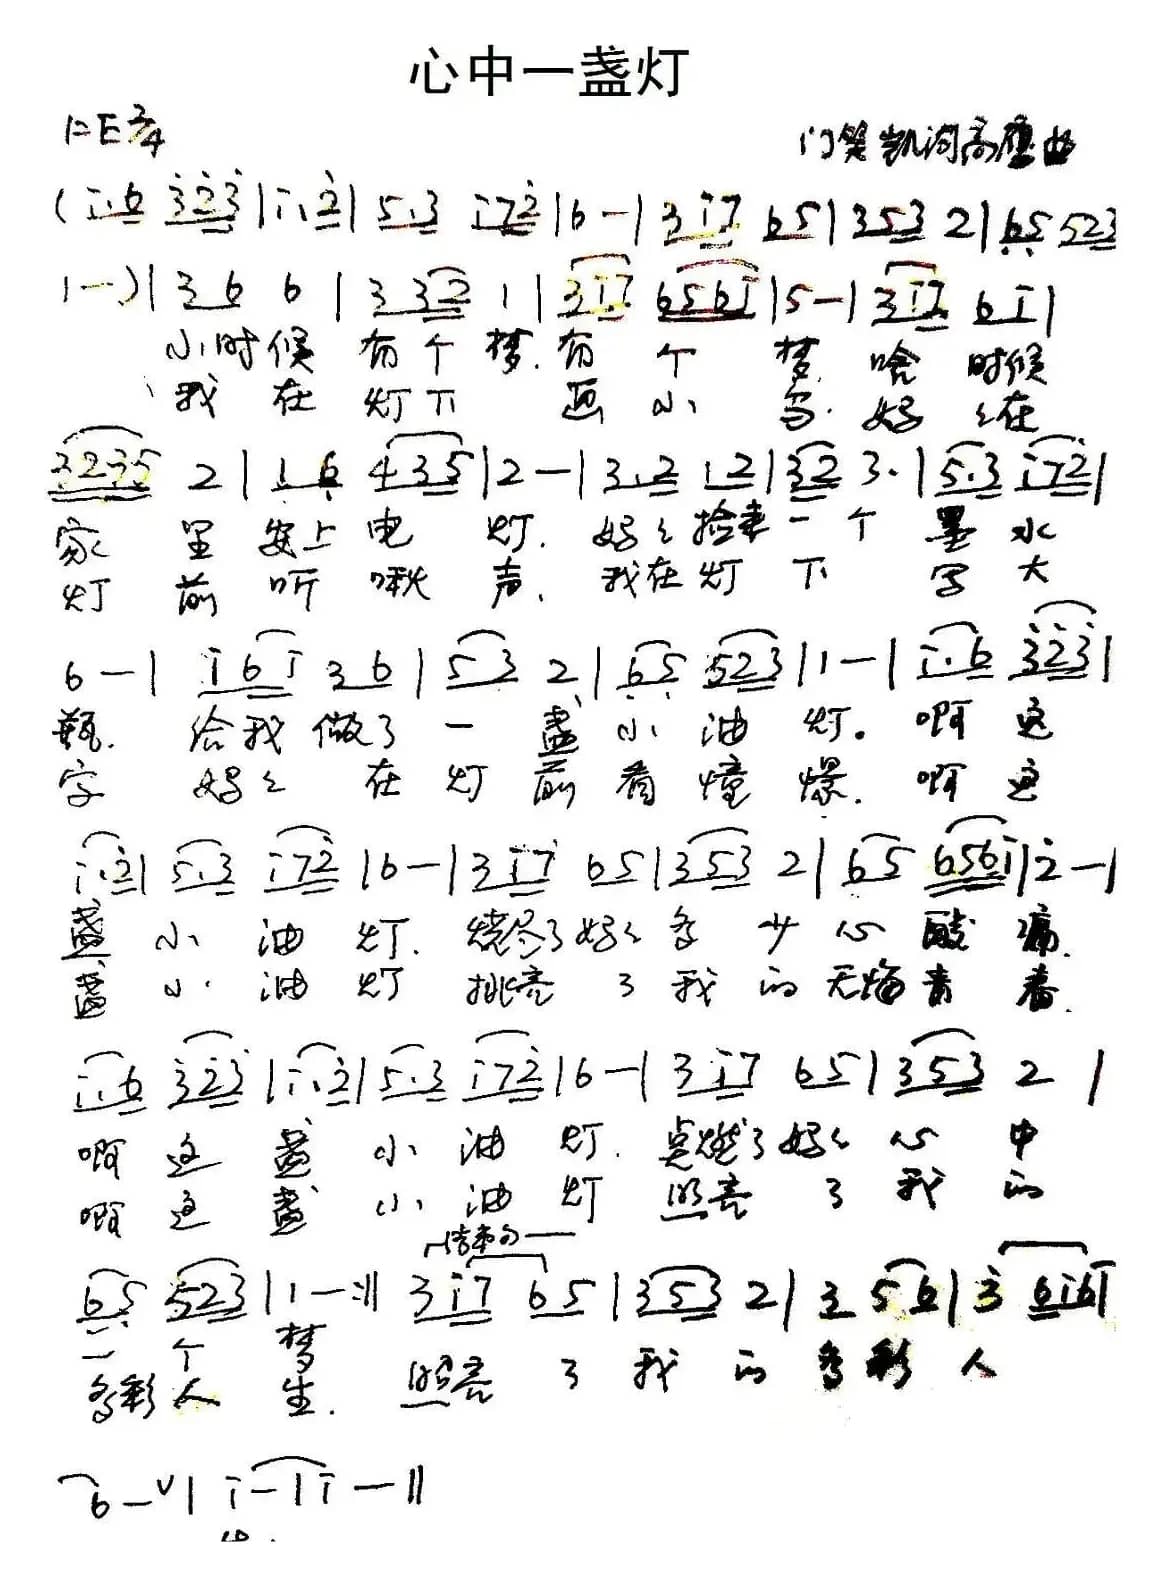 心中一盏灯
1=E 2/4
门笑凯词 高 曲
(i.6 323|i.2|5.3 i72|6-|3i7 65|353 2|65 523
1-)|36 6|332 1|3i7 656i|5-|3i7 6i|
小时候 有个梦.有个梦.啥时候
我在灯下画小鸟.妈妈在
3235 2|16 435|2-|3.2 12|32 3.|5.3 i72|
家里安上电灯.妈妈捡来一个墨水
灯前听啾声.我在灯下写大
6-|i6i 36|53 2|65 523|1-|i.6 323|
瓶.给我做了一盏小油灯。啊这
字妈妈在灯前看憧憬.啊这
i.2|5.3 i72|6-|3i7 65|353 2|65 656i|2-|
盏小油灯.烧尽了妈妈多少心酸痛.
盏小油灯挑亮了我的无悔青春.
i.6 323|i.2|5.3 i72|6-|3i7 65|353 2|
啊这盏小油灯.点燃了妈妈心中
啊这盏小油灯照亮了我的
结束句
65 523|1-:‖3i7 65|353 2|3 56|3 6i6i|
一个梦
多彩人生.照亮了我的多彩人
6-V|i-|i-‖